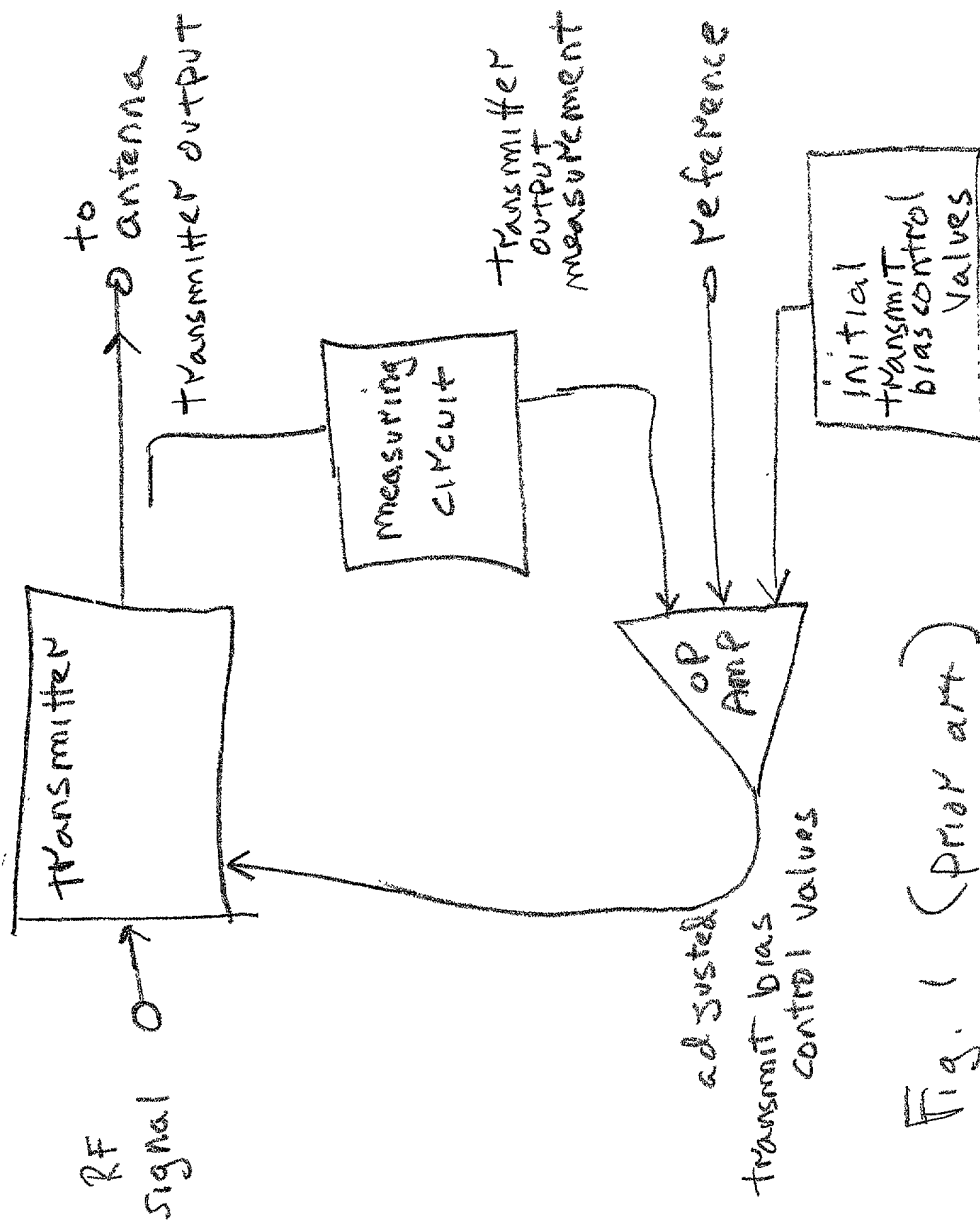 RF
signal
transmitter
to
antenna
transmitter output
measuring
circuit
transmitter
output
measurement
OP
AMP
reference
adjusted
transmit bias
control values
initial
transmit
bias control
values
Fig. 1 (prior art)